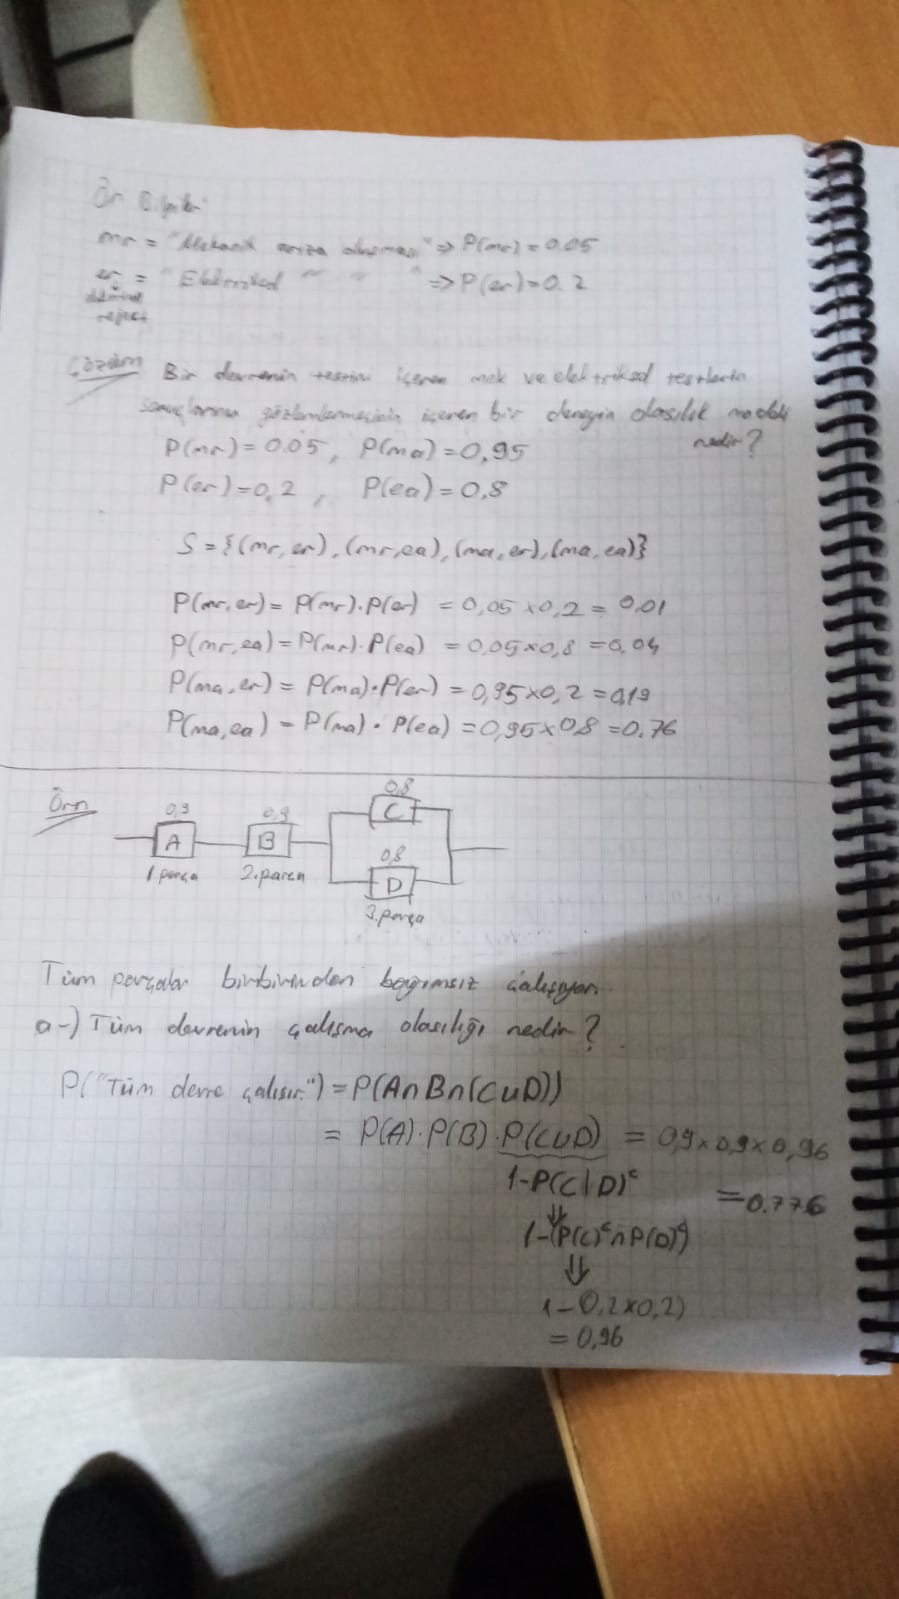 Ön Bilgiler
mr = "Mekanik arıza oluşması" => P(mr) = 0.05
er = "Elektriksel " " " => P(er)=0.2
reject
Çözüm Bir devrenin testini içeren mek ve elektriksel testlerin
sonuçlarının gözlemlenmesinin içeren bir deneyin olasılık modeli
nedir?
P(mr) = 0.05, P(ma) = 0,95
P(er) = 0,2 , P(ea) = 0,8
S = {(mr, er), (mr, ea), (ma, er), (ma, ea)}
P(mr, er) = P(mr).P(er) = 0,05 x 0,2 = 0.01
P(mr, ea) = P(mr).P(ea) = 0,05 x 0,8 = 0.04
P(ma, er) = P(ma).P(er) = 0,95 x 0,2 = 0,19
P(ma, ea) = P(ma) . P(ea) = 0,95 x 0,8 = 0.76
Örn
0,9 0,9 0,8
A B C
0,8
D
1.parça 2.parça
3.parça
Tüm parçalar birbirinden bağımsız çalışıyor.
a-) Tüm devrenin çalışma olasılığı nedir?
P("Tüm devre çalışır.") = P(A∩B∩(C∪D))
= P(A).P(B).P(C∪D) = 0,9 x 0,9 x 0,96
1-P(C|D)ᶜ
= 0.776
⇓
1-(P(C)ᶜ∩P(D)ᶜ)
⇓
1-0,2x0,2)
= 0,96